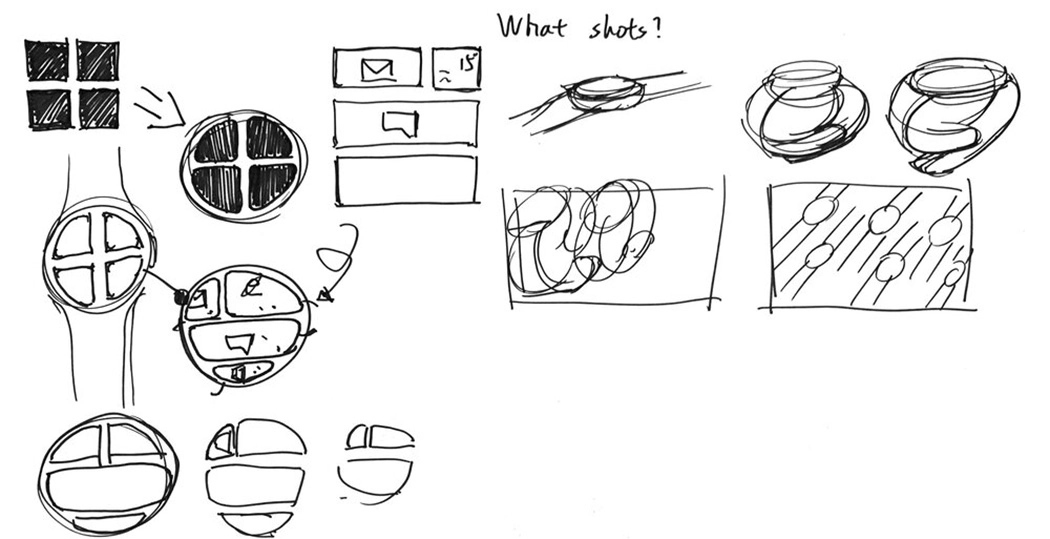 What shots?
15